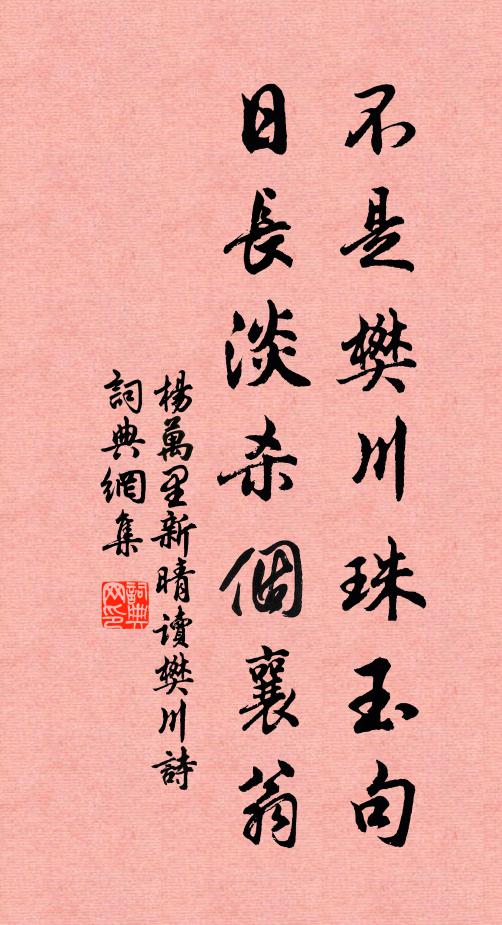 不是樊川珠玉句
日長淡杀個襄翁
楊萬里新晴讀樊川詩
詞典網集
詞典
网印